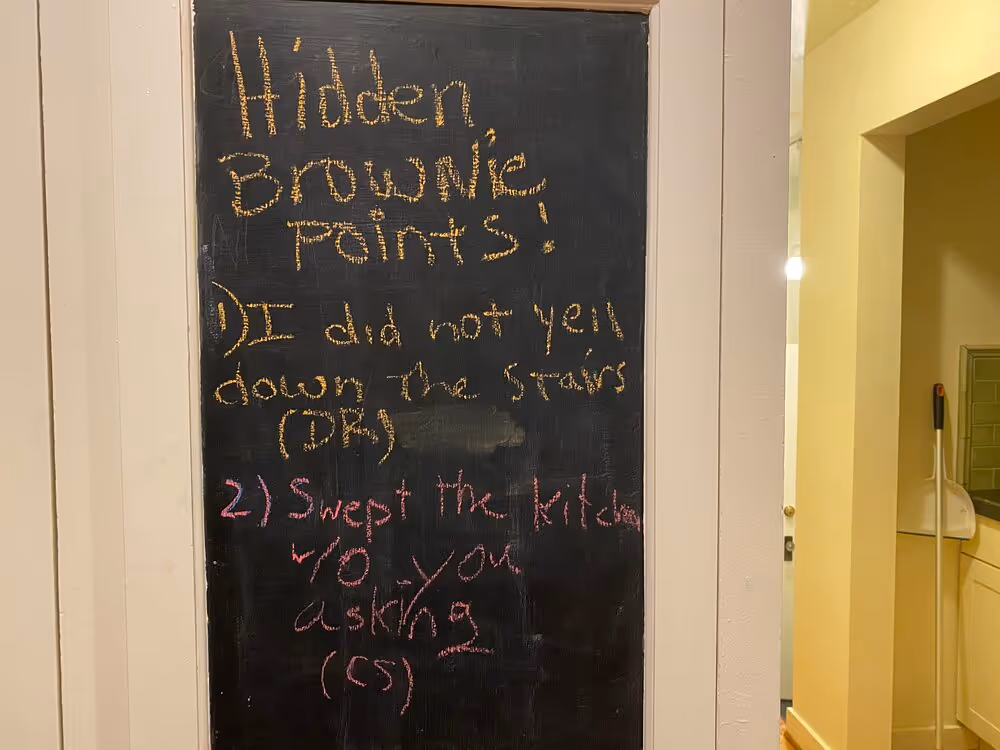 Hidden
Brownie
Points!
1) I did not yell
down the stairs
(DR)
2) Swept the kitchen
w/o you
asking
(CS)